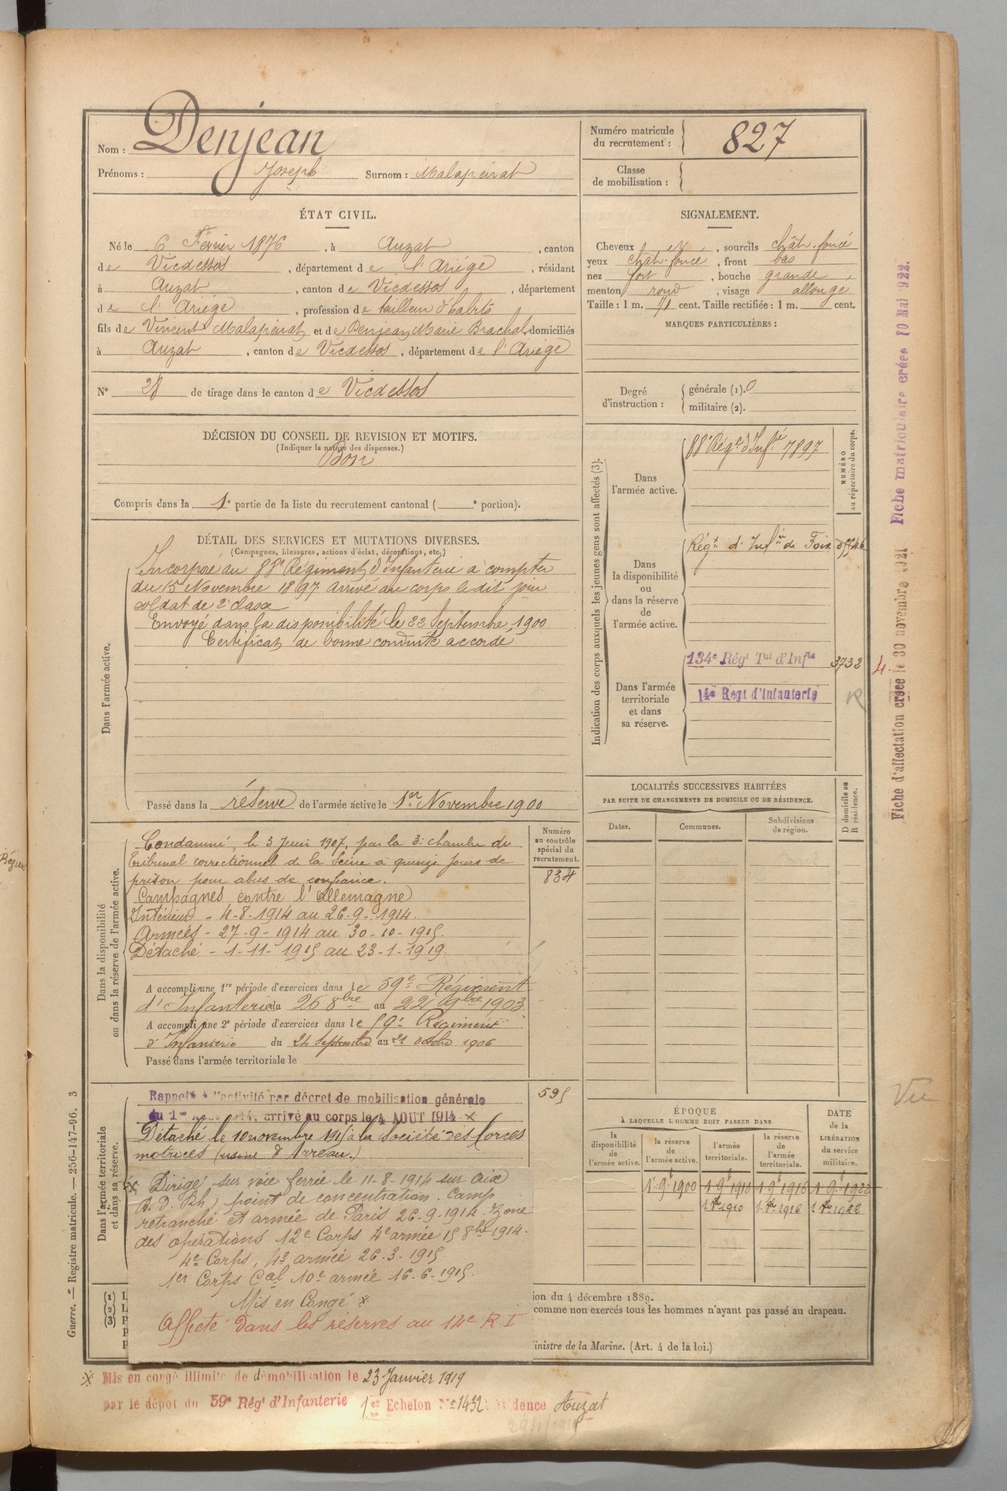 Nom : Denjean
Prénoms : Joseph Surnom : Malapeirat
Numéro matricule
du recrutement : 827
Classe
de mobilisation :
ÉTAT CIVIL.
Né le 6 Février 1876, à Auzat, canton
de Vicdessos, département de l'Ariège, résidant
à Auzat, canton de Vicdessos, département
de l'Ariège, profession de tailleur d'habits
fils de Vincent Malapeirat et de Denjean Marie Brachat, domiciliés
à Auzat, canton de Vicdessos, département de l'Ariège
N° 28 de tirage dans le canton de Vicdessos
SIGNALEMENT.
Cheveux et, sourcils chât. foncé
yeux chât. foncé, front bas
nez fort, bouche grande,
menton rond, visage allongé
Taille : 1 m. 71 cent. Taille rectifiée : 1 m. cent.
MARQUES PARTICULIÈRES :
Degré
d'instruction :
générale (1). 0
militaire (2).
DÉCISION DU CONSEIL DE REVISION ET MOTIFS.
(Indiquer la nature des dispenses.)
Bon
Compris dans la 1e partie de la liste du recrutement cantonal ( e portion).
DÉTAIL DES SERVICES ET MUTATIONS DIVERSES.
(Campagnes, blessures, actions d'éclat, décorations, etc.)
Dans l'armée active.
Incorporé au 88e Régiment d'Infanterie à compter
du 15 Novembre 1897 arrivé au corps le dit jour
soldat de 2e classe
Envoyé dans la disponibilité le 22 Septembre 1900
Certificat de bonne conduite accordé
Passé dans la réserve de l'armée active le 1er Novembre 1900
Indication des corps auxquels les jeunes gens sont affectés (3).
NUMÉRO
au répertoire du corps.
Dans
l'armée active.
88e Régt d'Infie 7897
Dans
la disponibilité
ou
dans la réserve
de
l'armée active.
Régt d'Infie de Foix
Dans l'armée
territoriale
et dans
sa réserve.
134e Régt Tal d'Infie 3732
14e Regt d'Infanterie R
4
LOCALITÉS SUCCESSIVES HABITÉES
PAR SUITE DE CHANGEMENTS DE DOMICILE OU DE RÉSIDENCE.
D domicile ou
R résidence.
Dates.
Communes.
Subdivisions
de région.
Dans la disponibilité
ou dans la réserve de l'armée active.
Numéro
au contrôle
spécial du
recrutement.
834
Condamné, le 3 Juin 1907, par la 3e chambre du
tribunal correctionnel de la Seine à quinze jours de
prison pour abus de confiance.
Campagnes contre l'Allemagne
Intérieur - 4-8-1914 au 26-9-1914.
Armées - 27-9-1914 au 30-10-1915.
Détaché - 1-11-1915 au 23-1-1919.
A accompli une 1re période d'exercices dans le 59e Régiment
d'Infanterie du 26 8bre au 22 9bre 1903.
A accompli une 2e période d'exercices dans le 59e Régiment
d'Infanterie du 24 Septembre au 21 octobre 1906
Passé dans l'armée territoriale le
Dans l'armée territoriale
et dans sa réserve.
595
Rappelé à l'activité par décret de mobilisation générale
arrivé au corps le 4 AOUT 1914 x
Détaché le 10 novembre 1915 à la Société des forces
motrices (usine d'Arreau.)
x Dirigé sur voie ferrée le 11-8-1914 sur Aix
point de concentration. Camp
retranché et armée de Paris 26-9-1914. Zone
des opérations 12e Corps 4e armée 15 8bre 1914.
4e Corps, 4e armée 26-3-1915
1er Corps Cal 10e armée 16-6-1915.
Mis en Congé x
Affecté dans les réserves au 14e R I
ÉPOQUE
À LAQUELLE L'HOMME DOIT PASSER DANS
DATE
de la
LIBÉRATION
du service
militaire.
la
disponibilité
de
l'armée active.
la réserve
de
l'armée active.
l'armée
territoriale.
la réserve
de
l'armée
territoriale.
1 9e 1900 1 9e 1910 1 9e 1916 1 9e 1922
1 8e 1910 1 8e 1916 1 8e 1922
ion du 4 décembre 1889.
comme non exercés tous les hommes n'ayant pas passé au drapeau.
inistre de la Marine. (Art. 4 de la loi.)
x Mis en congé illimité de démobilisation le 23 Janvier 1919
par le dépôt du 59e Régt d'Infanterie 1er Echelon N° 1432 Auzat
Guerre. — Registre matricule. — 256-147-96. 3
Fiche d'affectation créée le 30 novembre 1921 Fiche matriculaire créée 10 Mai 1922.
Vu